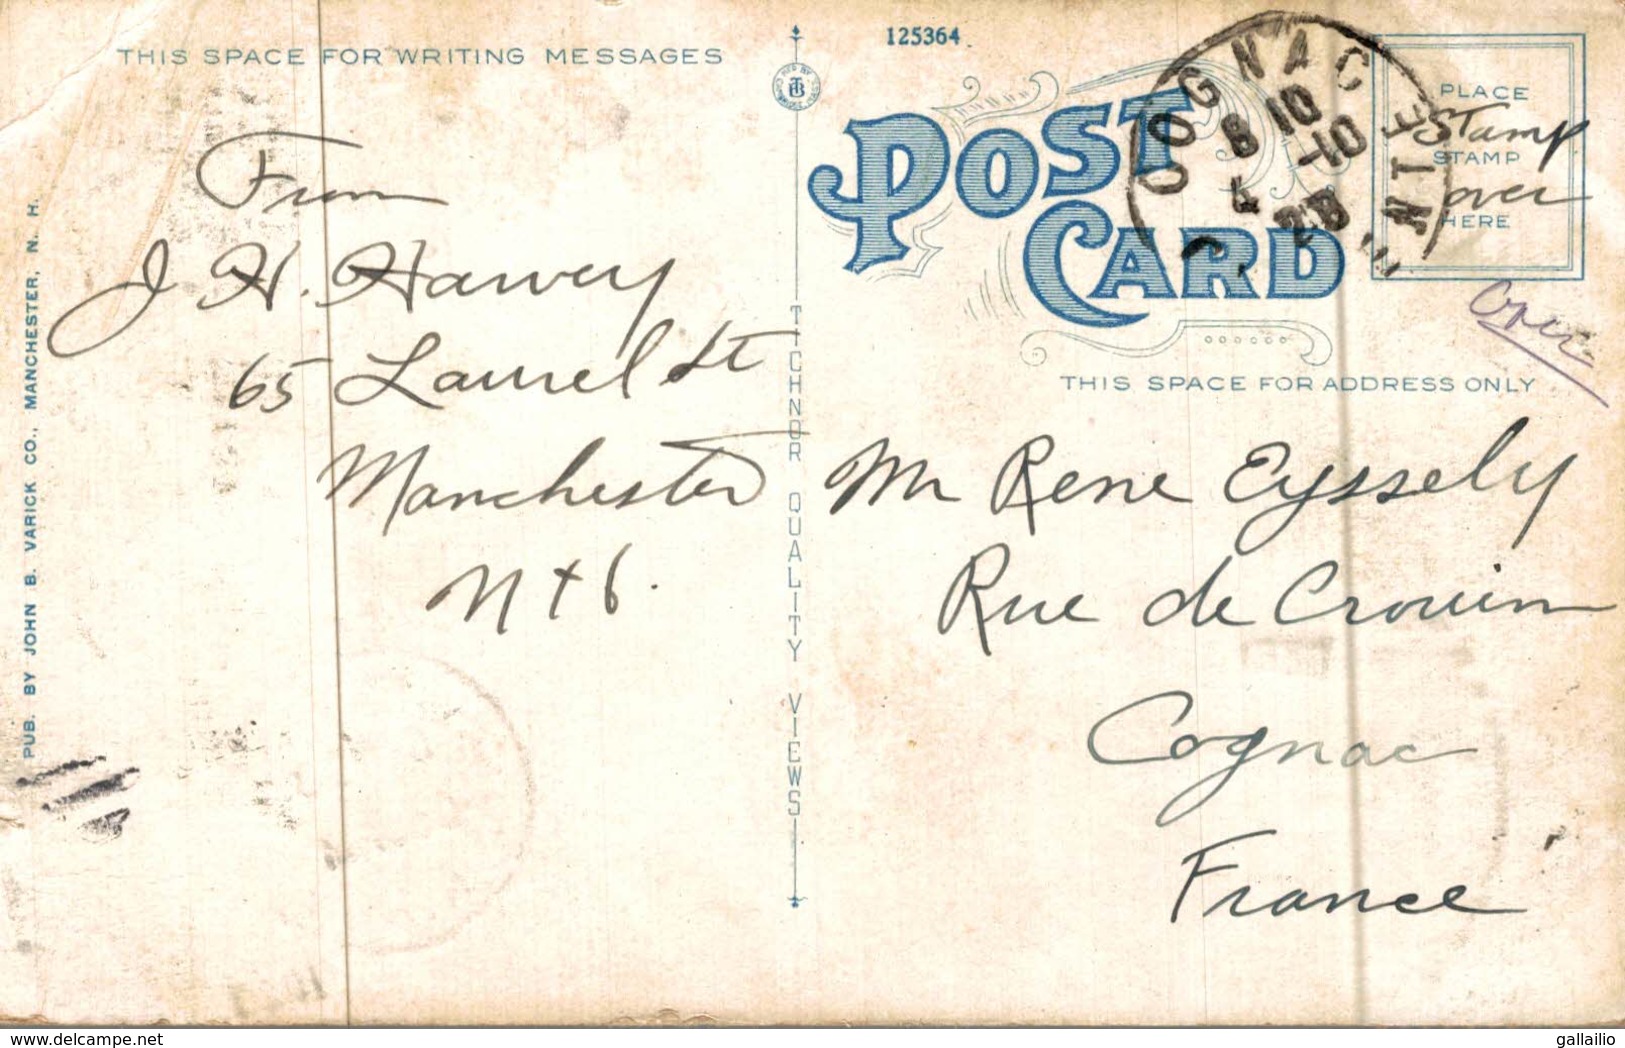 THIS SPACE FOR WRITING MESSAGES
From
J H. Harvey
65 Laurel St
Manchester
N H
PUB. BY JOHN B. VARICK CO., MANCHESTER, N. H.
TICHNOR QUALITY VIEWS
125364
POST CARD
COGNAC
8 10
-10
28
PLACE
STAMP
HERE
Stamp
over
over
THIS SPACE FOR ADDRESS ONLY
Mr Rene Eyssely
Rue de Crouin
Cognac
France
delcampe.net
gallailio